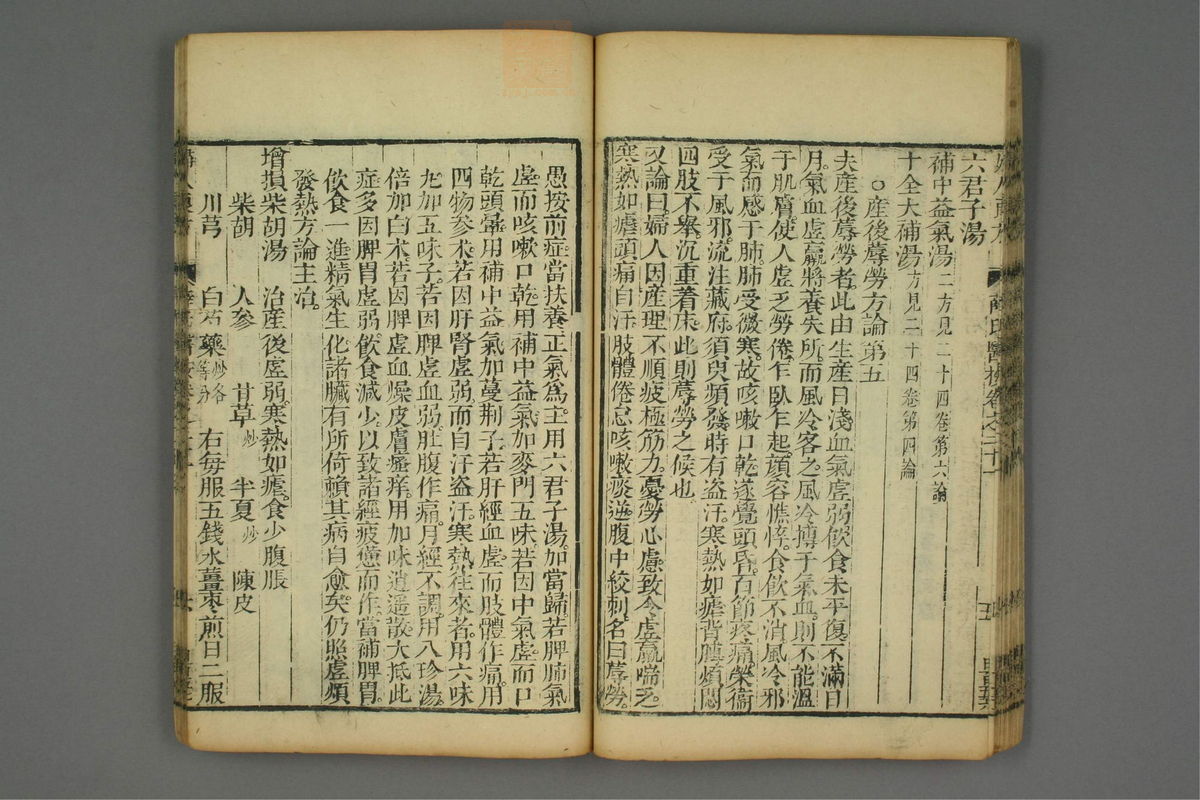 六君子湯
補中益氣湯二方見二十四卷第六論
十全大補湯方見二十四卷第四論
○產後蓐勞方論第五
夫產後蓐勞者此由生產日淺血氣虛弱飲食未平復不滿日
月氣血虛羸將養失所而風冷客之風冷摶于氣血則不能溫
于肌膚使人虛乏勞倦乍臥乍起顔容憔悴食飲不消風冷邪
氣而感于肺肺受微寒故咳嗽口乾遂覺頭昏百節疼痛榮衛
受于風邪流注藏府須臾頻發時有盗汗寒熱如瘧背膊煩悶
四肢不舉沉重着床此則蓐勞之候也
又論曰婦人因產理不順疲極筋力憂勞心慮致令虛羸喘乏
寒熱如瘧頭痛自汗肢體倦怠咳嗽痰逆腹中絞刺名曰蓐勞
愚按前症當扶養正氣爲主用六君子湯加當歸若脾肺氣
虛而咳嗽口乾用補中益氣加麥門五味若因中氣虛而口
乾頭暈用補中益氣加蔓荆子若肝經血虛而肢體作痛用
四物參术若因肝腎虛弱而自汗盗汗寒熱往來者用六味
丸加五味子若因脾虛血弱肚腹作痛月經不調用八珍湯
倍加白术若因脾虛血燥皮膚瘙痒用加味逍遥散大抵此
症多因脾胃虛弱飲食減少以致諸經疲憊而作當補脾胃
飲食一進精氣生化諸臟有所倚賴其病自愈矣仍照虛煩
發熱方論主治
增損柴胡湯 治產後虛弱寒熱如瘧食少腹脹
柴胡 人參 甘草炒 半夏炒 陳皮
川芎 白芍藥炒各等分 右每服五錢水薑棗煎日二服